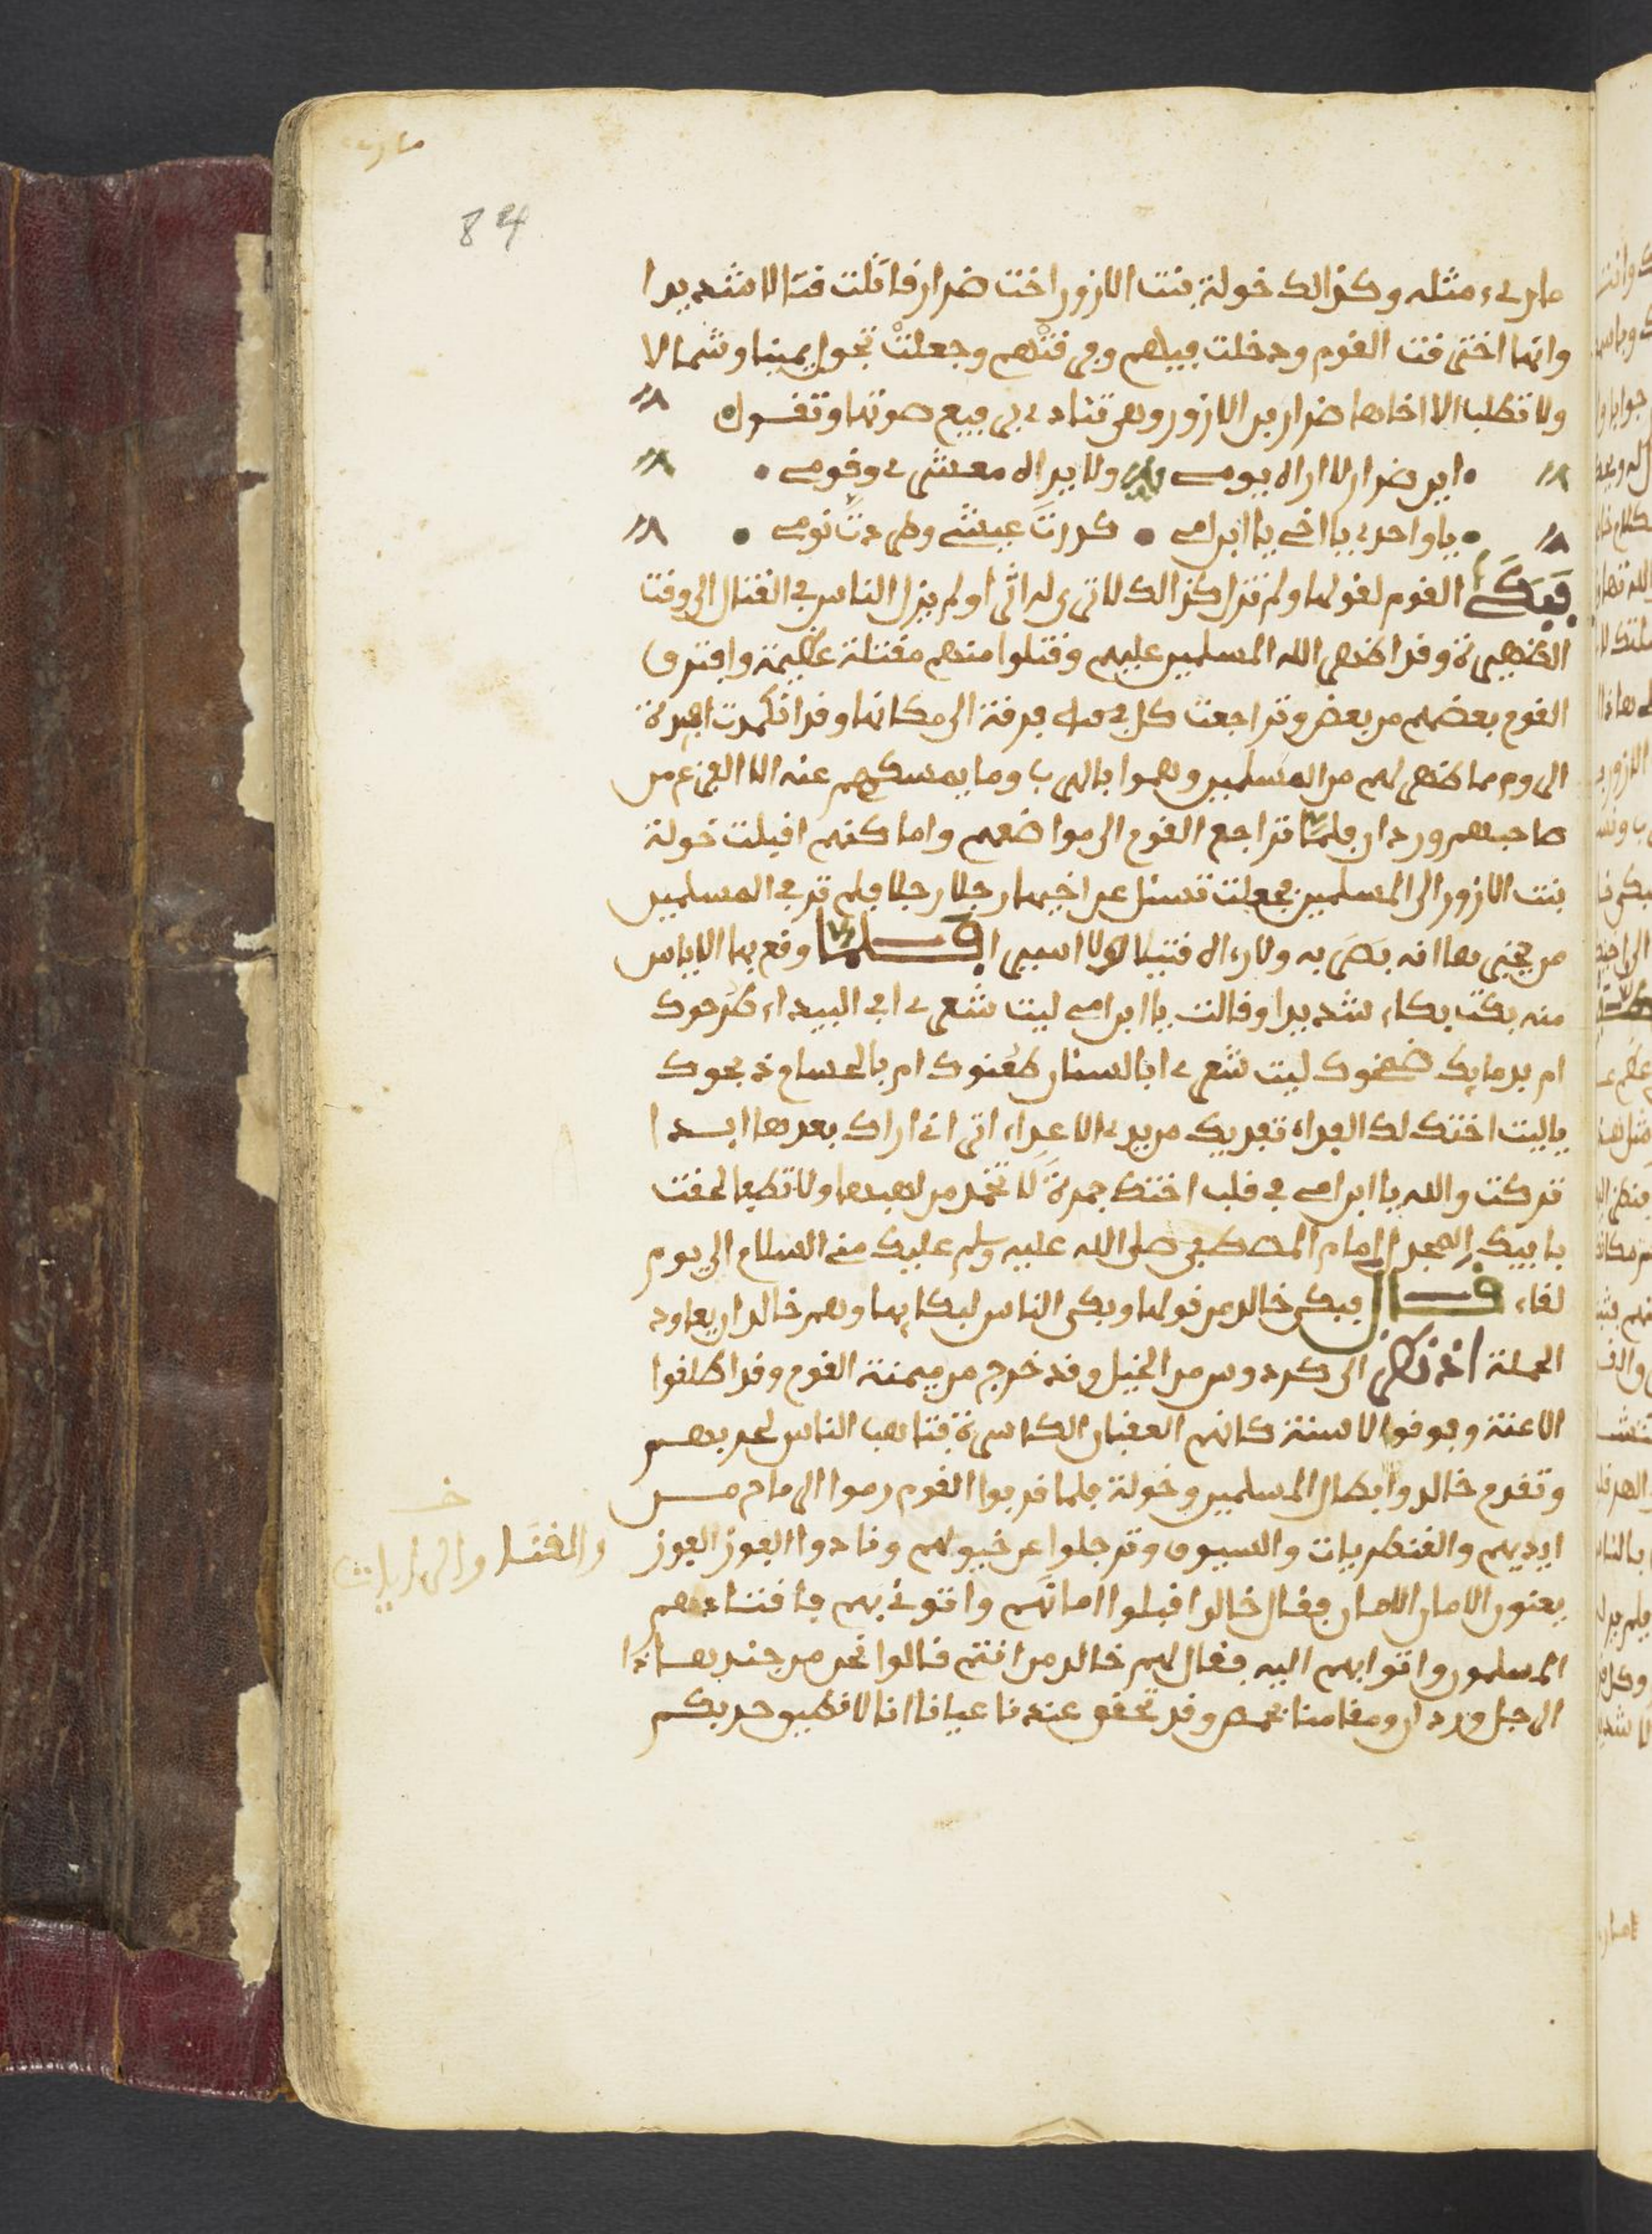 84
ما رءى مثله وكذالك خولة بنت الازور اخت ضرار قاتلت قتالا شديدا
وانها اخترقت القوم ودخلت فيهم وفرقتهم وجعلت تجول يمينا وشمالا
ولا تطلب الا اخاها ضرار بن الازور وهى تنادي برفيع صوتها وتقول
اين ضرار لا اراه يومي ولا يراه معشري وقومي
يا واحدي يا اخي يا ابن امي كدرت عيشي وطردت نومي
فبكى القوم لقولها ولم تزل كذالك لا ترى له اثرا ولم يزل الناس في القتال الى وقت
الظهيرة وقد اظهر الله المسلمين عليهم وقتلوا منهم مقتلة عظيمة وافترق
القوم بعضهم من بعض وتراجعت كل فرقة الى مكانها وقد انكمدت افئدة
الروم مما ظهر لهم من المسلمين وهموا بالهرب وما يمسكهم عنه الا الفزع من
صاحبهم وردان فلما تراجع القوم الى مواضعهم واماكنهم اقبلت خولة
بنت الازور الى المسلمين فجعلت تسئل عن اخيها رجلا رجلا فلم تر في المسلمين
من يخبرها انه بصر به ولا رءاه قتيلا ولا اسيرا فلما وقع بها الاياس
منه بكت بكاء شديدا وقالت يا ابن امي ليت شعري افي البيداء طرحوك
ام بدمايك ضمخوك ليت شعري ابالسنان طعنوك ام بالحسام ذبحوك
يا ليت اختك لك الفداء تفديك من يدي الاعداء اترى اني اراك بعدها ابدا
تركت والله يا ابن امي في قلب اختك جمرة لا تخمد من لهيبها ولا تطفى لحقت
بابيك امام المصطفى صلى الله عليه وسلم عليك مني السلام الى يوم
لقاء قال فبكى خالد من قولها وبكى الناس لبكايها وهم خالد ان يعاود
الحملة اذ نظر الى كردوس من الخيل وقد خرج من ميمنة القوم وقد اطلقوا
الاعنة وقوفوا الاسنة كانهم العقبان الكاسرة فتاهب الناس لحربهم
وتقدم خالد وابطال المسلمين وخولة فلما قربوا القوم رموا الرماح من
ايديهم والقنطريات والسيوف وترجلوا عن خيولهم ونادوا الفوز الفوز
يعنون الامان الامان فقال خالد اقبلوا امانهم واتوني بهم فاقتادهم
المسلمون واتوا بهم اليه فقال لهم خالد من انتم قالوا نحن من جند هاذا
الرجل وردان ومقامنا بحمص وقد تحقق عندنا عيانا انا لا نطيق حربكم
خ
والقنا والرايات